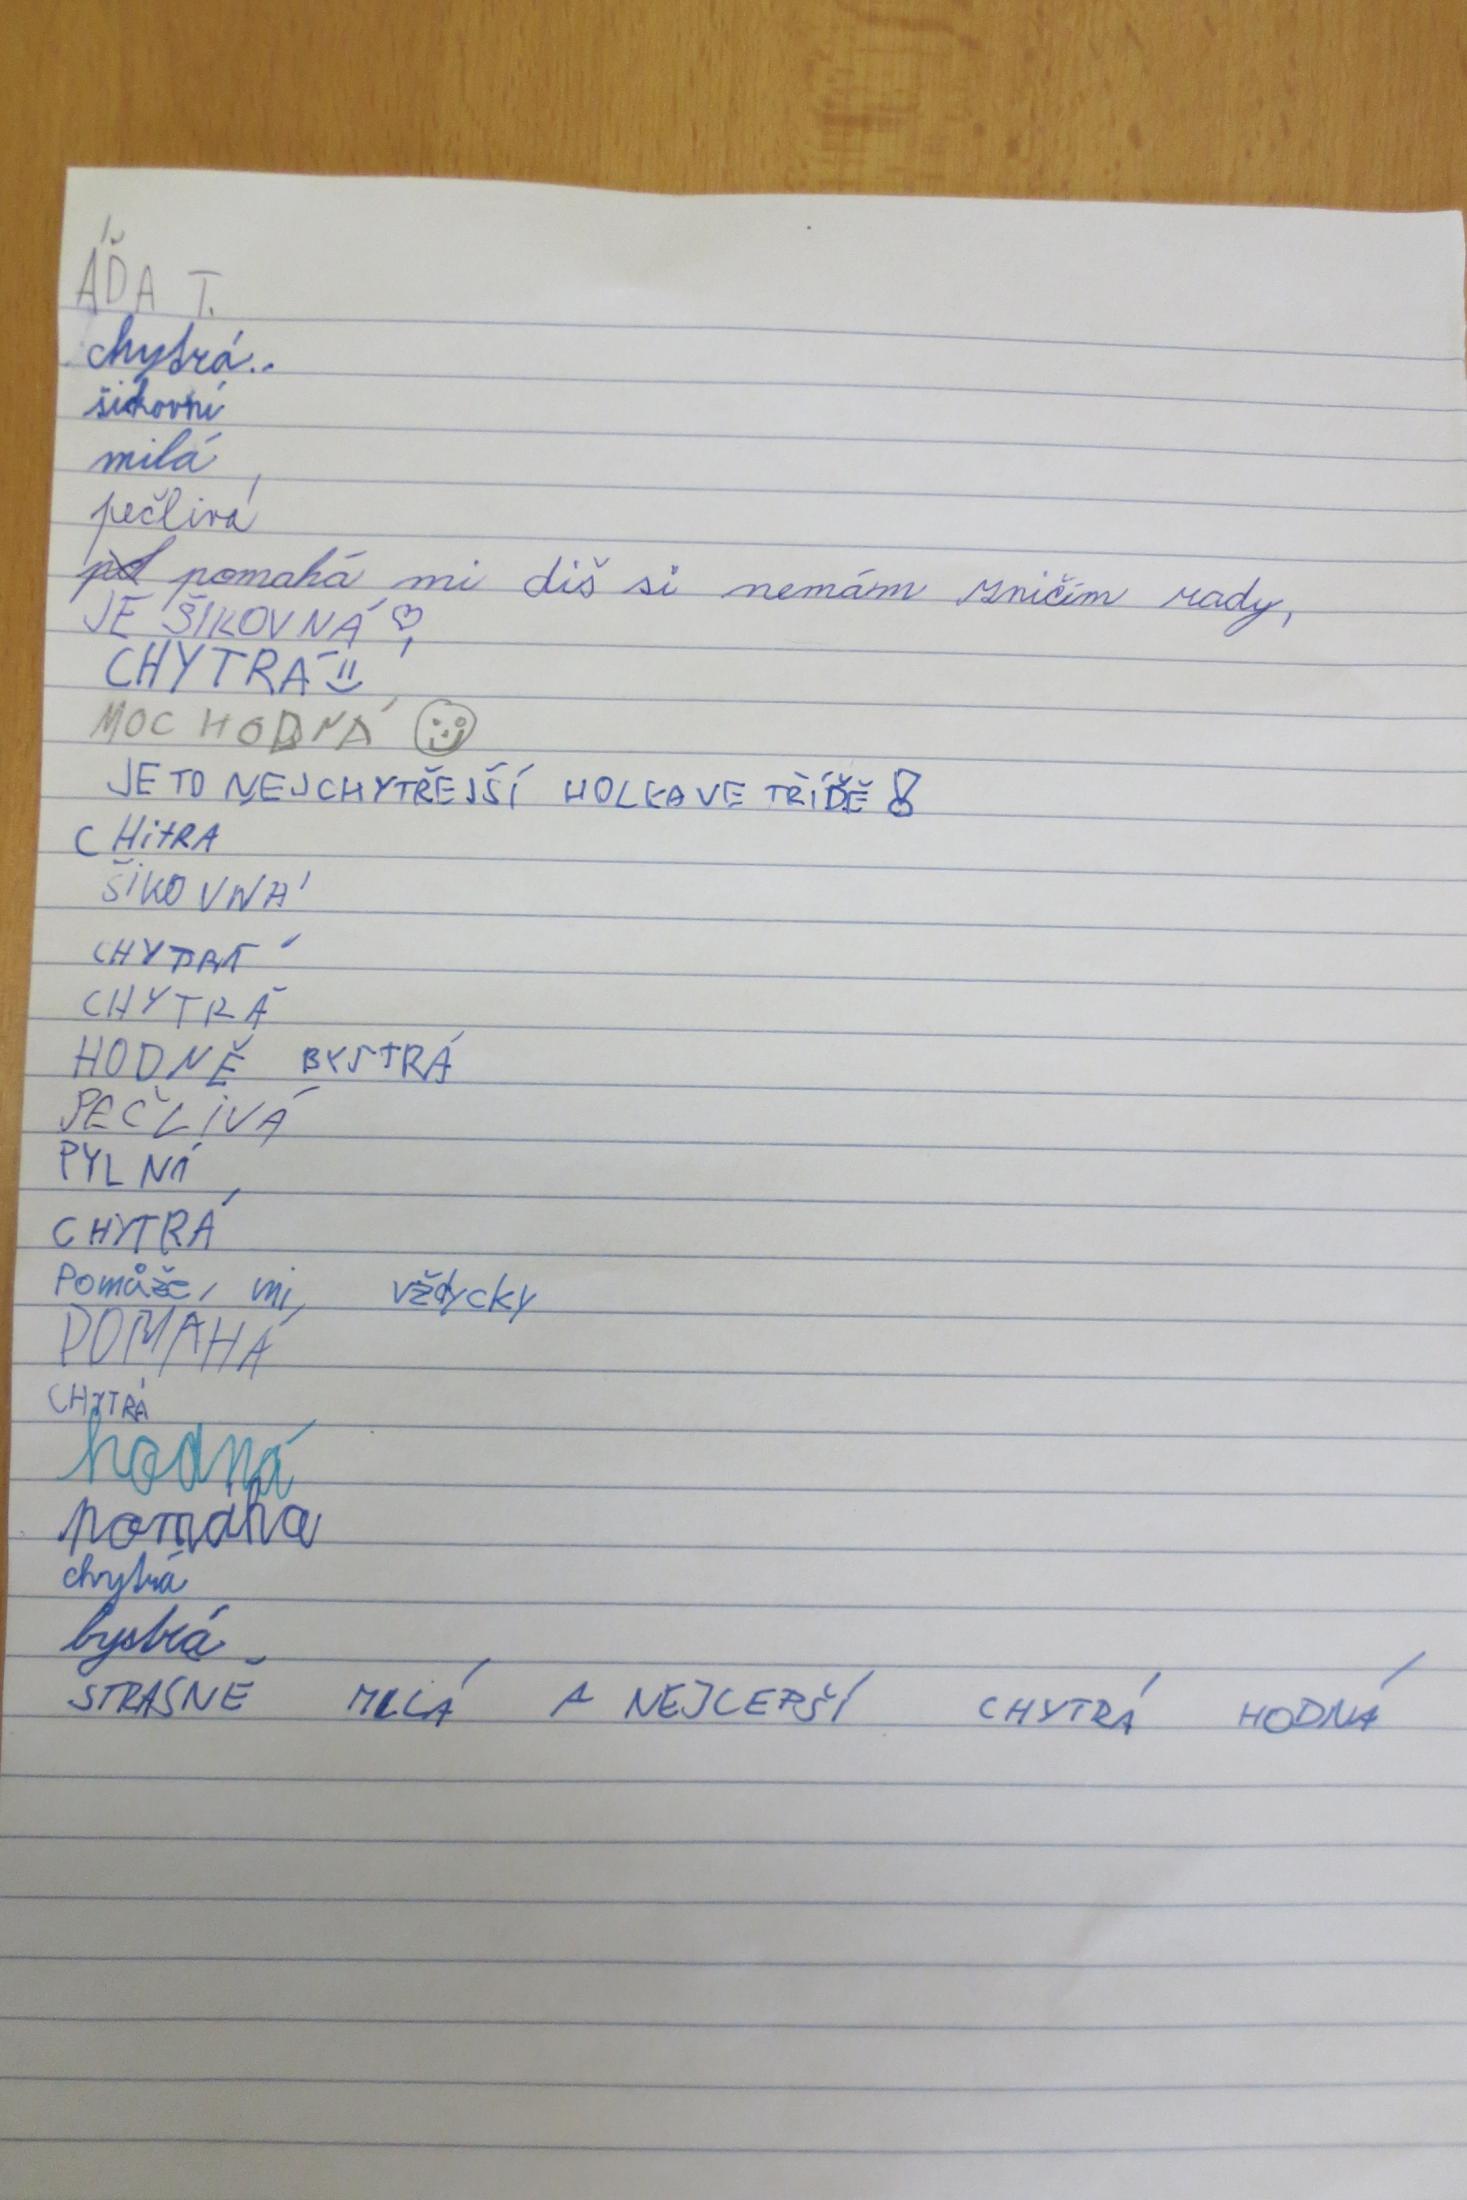 ÁĎA T.
chytrá..
šikovní
milá
pečlivá
pomahá mi diš si nemám zničím rady,
JE ŠIKOVNÁ ♡
CHYTRÁ
MOC HODNÁ
JE TO NEJCHYTŘEJŠÍ HOLKA VE TŘÍDĚ!
CHitRA
ŠIKOVNÁ
CHYTRÁ
CHYTRÁ
HODNĚ BYSTRÁ
PEČLIVÁ
PYLNÁ
CHYTRÁ
Pomůže, mi, vždycky
POMAHÁ
CHYTRÁ
hodná
pomáha
chytrá
bystrá
STRAŠNĚ MILÁ A NEJLEPŠÍ CHYTRÁ HODNÁ